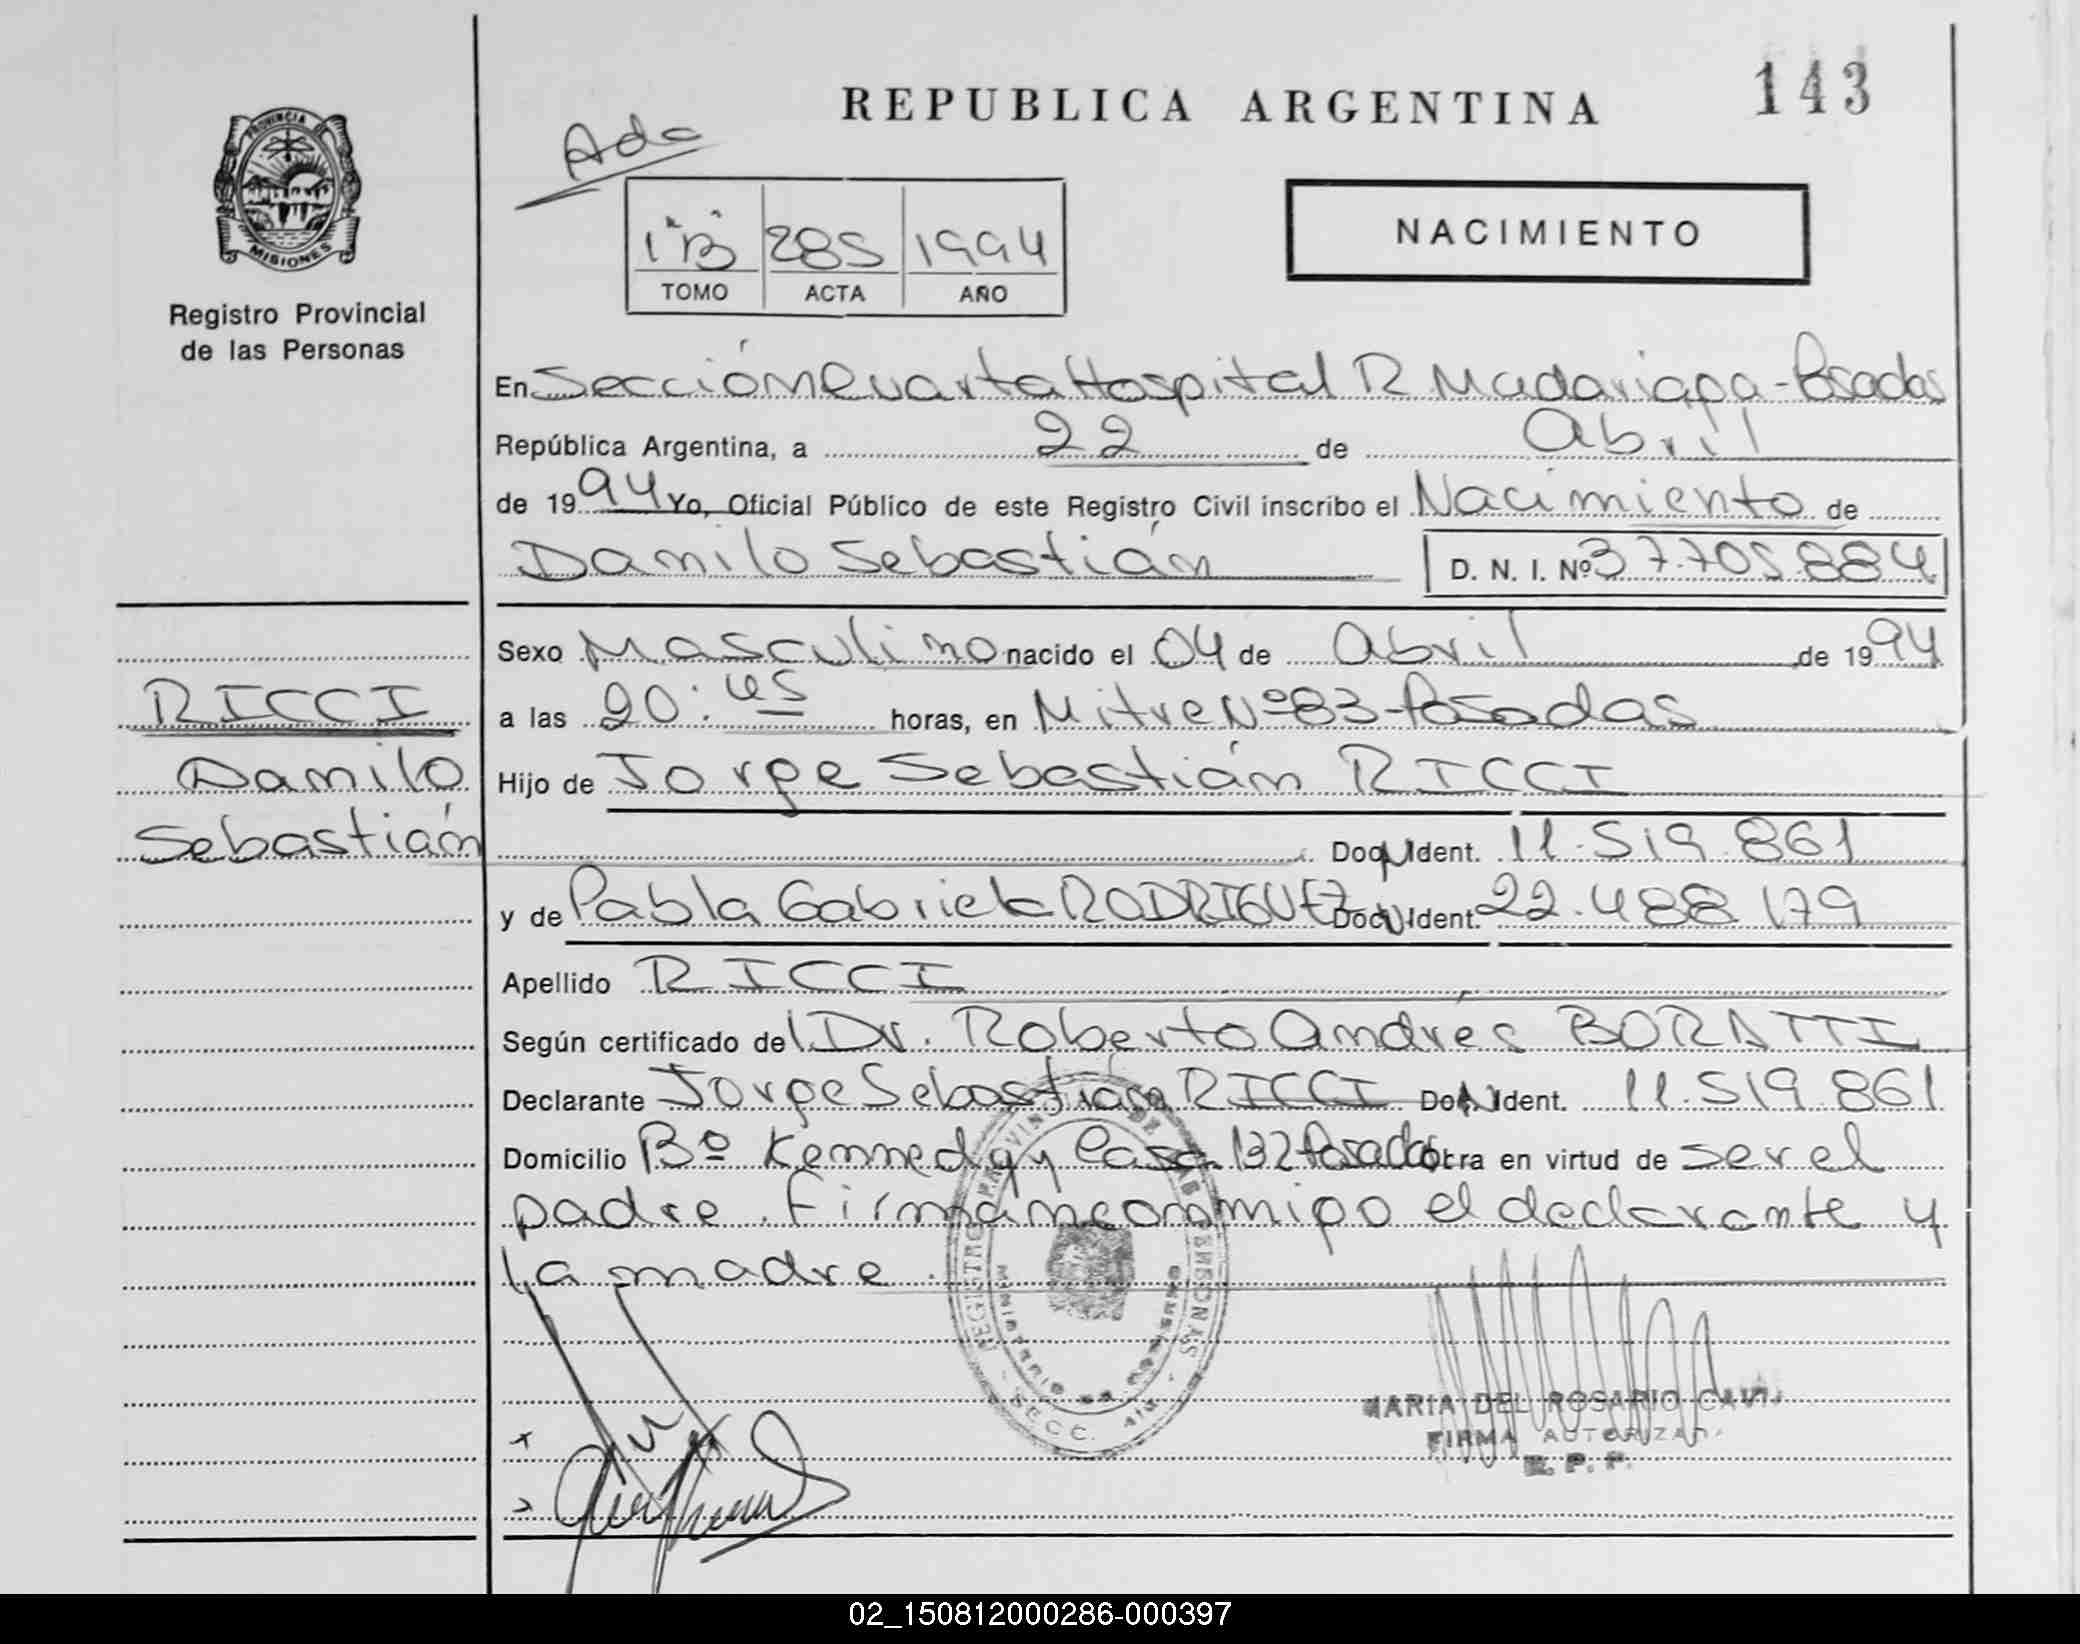 REPUBLICA ARGENTINA
143
Ada
PROVINCIA DE
MISIONES
Registro Provincial
de las Personas
1°B 285 1994
TOMO ACTA AÑO
NACIMIENTO
En Sección Cuarta Hospital R. Madariaga - Posadas
República Argentina, a 22 de Abril
de 1994 Yo, Oficial Público de este Registro Civil inscribo el Nacimiento de
Danilo Sebastián D. N. I. Nº 37.705.884
Sexo Masculino nacido el 04 de Abril de 1994
RICCI
a las 20:45 horas, en Mitre Nº 83 - Posadas
Danilo
Hijo de Jorge Sebastián RICCI
Sebastián
Doc. Ident. 11.519.861
y de Pabla Gabriela RODRIGUEZ Doc. Ident. 22.488.179
Apellido RICCI
Según certificado del Dr. Roberto Andrés BORATTI
Declarante Jorge Sebastián RICCI Doc. Ident. 11.519.861
Domicilio Bº Kennedy Casa 132 Posadas Obra en virtud de ser el
padre. Firman conmigo el declarante y
la madre.
REGISTRO PROVINCIAL DE LAS PERSONAS
Ministerio de Gobierno
SECC. 4ta
MARIA DEL ROSARIO
FIRMA AUTORIZADA
R. P. P.
02_150812000286-000397